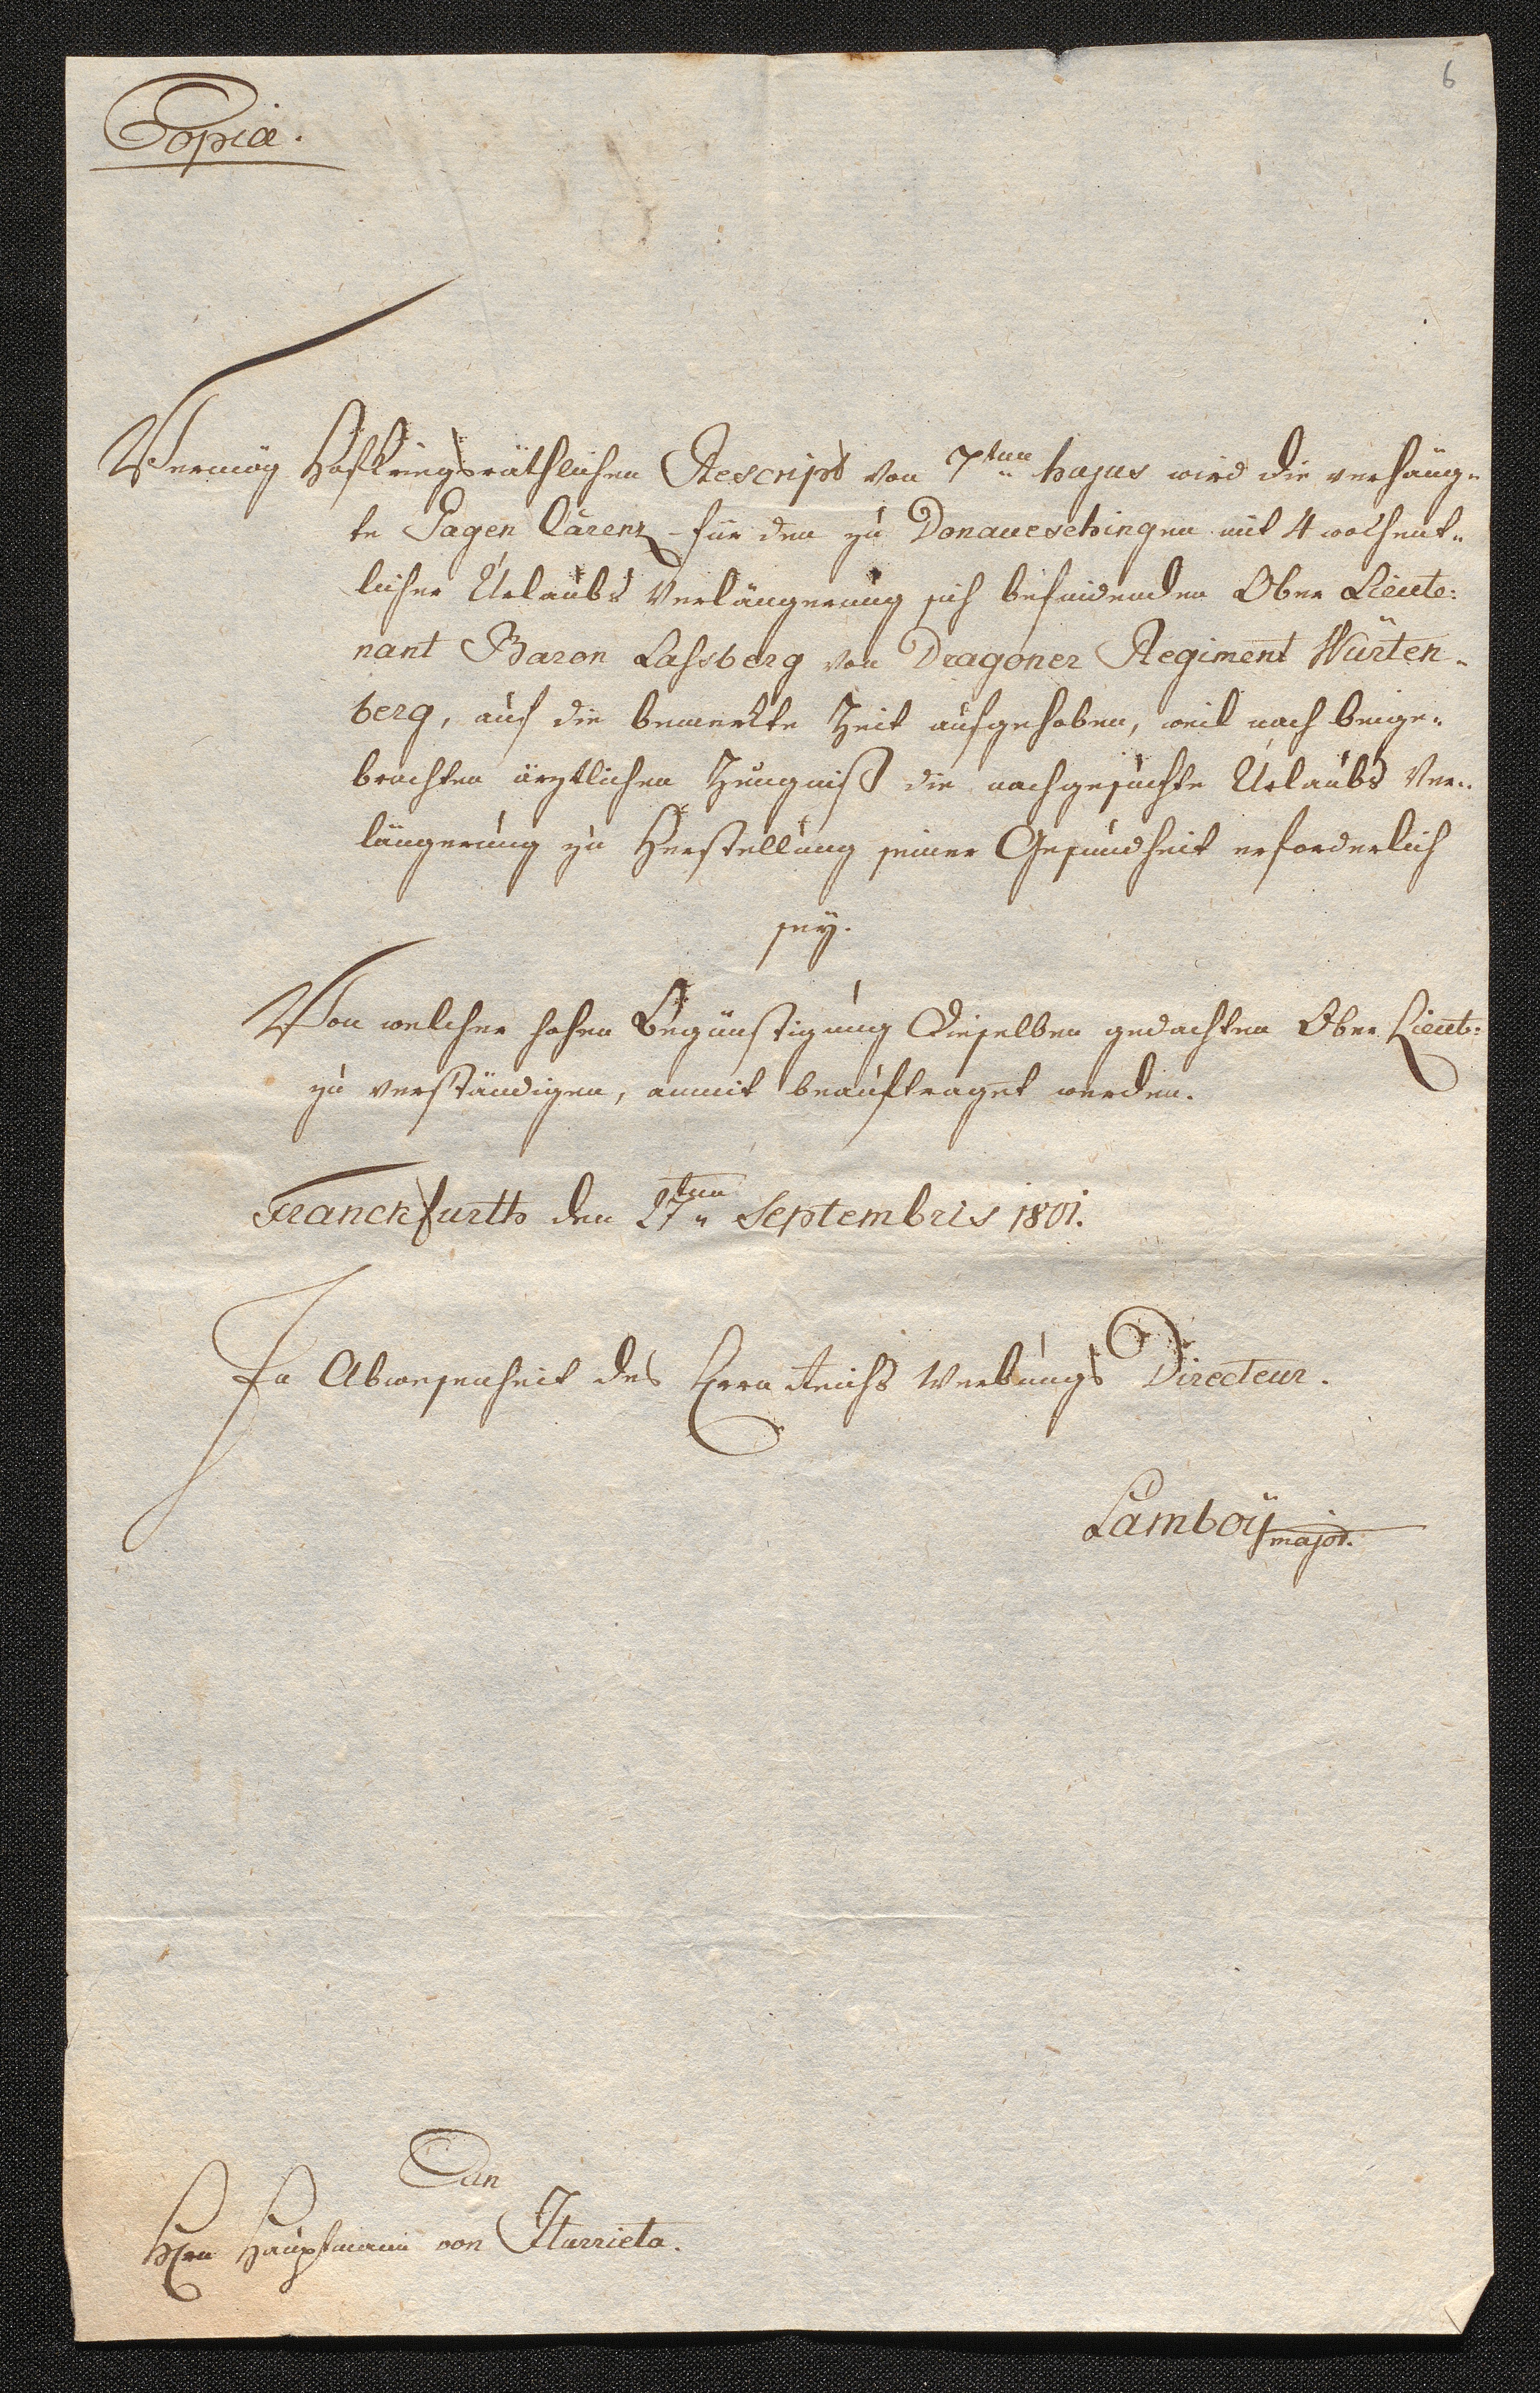 6
Copia.
Vermög Hofkriegsräthlichen Rescript von 7ten hujus wird die verhäng=
te Gagen Carenz für den zu Donaueschingen mit 4 wochent=
licher Urlaubs Verlängerung sich befindenden Ober Lieute=
nant Baron Lassberg von Dragoner Regiment Würten=
berg, auf die bemerkte Zeit aufgehoben, weil nach beige=
brachten ärztlichen Zeugniß die nachgesuchte Urlaubs Ver=
längerung zu Herstellung seiner Gesundheit erforderlich
sey.
Von welcher hohen Begünstigung Dieselben gedachten Ober Lieut:
zu verständigen, anmit beauftraget werden.
Franckfurth den 27ten Septembris 1801.
In Abwesenheit des Herrn Reichs Werbungs Directeur.
Lamboÿ major.
An
Hrn Hauptmann von Iturrieta.